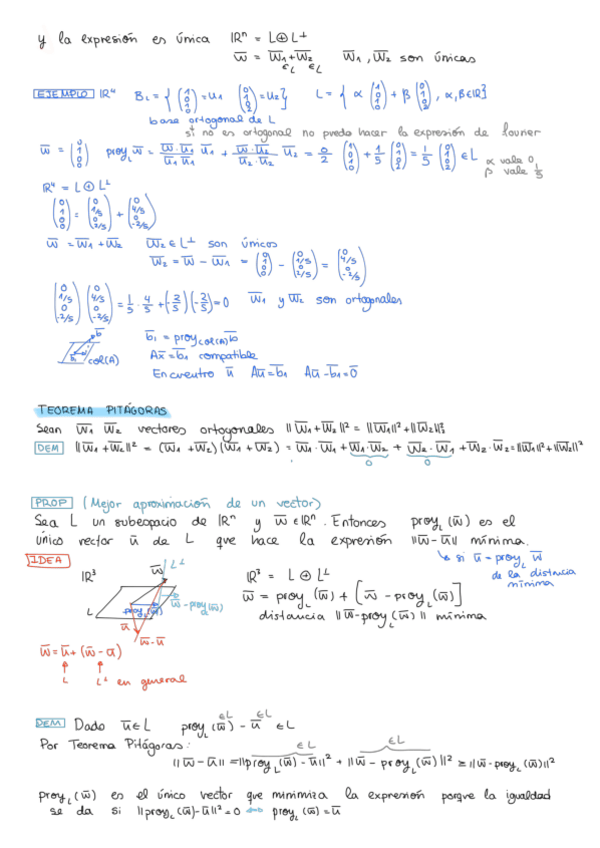 y la expresión es única ℝⁿ = L⊕L⊥
w̄ = w̄₁+w̄₂ w̄₁, w̄₂ son únicas
∈L ∈L
EJEMPLO ℝ⁴ B_L = { (1 1 0 0) = u₁ (0 0 1 2) = u₂ } L = { α (1 1 0 0) + β (0 0 1 2), α,β∈ℝ}
base ortogonal de L
si no es ortogonal no puedo hacer la expresión de fourier
proy_L w̄ = w̄·ū₁/ū₁·ū₁ ū₁ + w̄·ū₂/ū₂·ū₂ ū₂ = ∈L
α vale 0
β vale 1/5
ℝ⁴ = L ⊕ L⊥
w̄ = w̄₁+w̄₂ w̄₂∈L⊥ son únicos
w̄₂ = w̄ − w̄₁ =
= 1/5 · 4/5 + (2/5)(−2/5) = 0 w̄₁ y w̄₂ son ortogonales
b̄
col(A)
b̄₁ = proy_col(A) b̄
Ax̄ = b̄₁ compatible
Encuentro ū Aū = b̄₁ Aū − b̄₁ = 0̄
TEOREMA PITÁGORAS
Sean w̄₁ w̄₂ vectores ortogonales ||w̄₁+w̄₂||² = ||w̄₁||²+||w̄₂||²
DEM ||w̄₁+w̄₂||² = (w̄₁+w̄₂)(w̄₁+w̄₂) = w̄₁·w̄₁+w̄₁·w̄₂ + w̄₂·w̄₁+w̄₂·w̄₂ = ||w̄₁||²+||w̄₂||²
0 0
PROP (Mejor aproximación de un vector)
Sea L un subespacio de ℝⁿ y w̄∈ℝⁿ. Entonces proy_L(w̄) es el
único vector ū de L que hace la expresión ||w̄−ū|| mínima.
si ū = proy_L w̄
de la distancia
mínima
IDEA
ℝ³ w̄ L⊥
L proy_L(w̄) w̄−proy_L(w̄)
ū w̄−ū
ℝ³ = L ⊕ L⊥
w̄ = proy_L(w̄) + [w̄ − proy_L(w̄)]
distancia ||w̄−proy_L(w̄)|| mínima
w̄ = ū + (w̄−ū)
L L⊥ en general
DEM Dado ū∈L proy_L(w̄) − ū ∈L
∈L ∈L
Por Teorema Pitágoras:
∈L ∈L
||w̄−ū|| = ||proy_L(w̄)−ū||² + ||w̄−proy_L(w̄)||² ≥ ||w̄−proy_L(w̄)||²
proy_L(w̄) es el único vector que minimiza la expresión porque la igualdad
se da si ||proy_L(w̄)−ū||² = 0 ⇔ proy_L(w̄) = ū